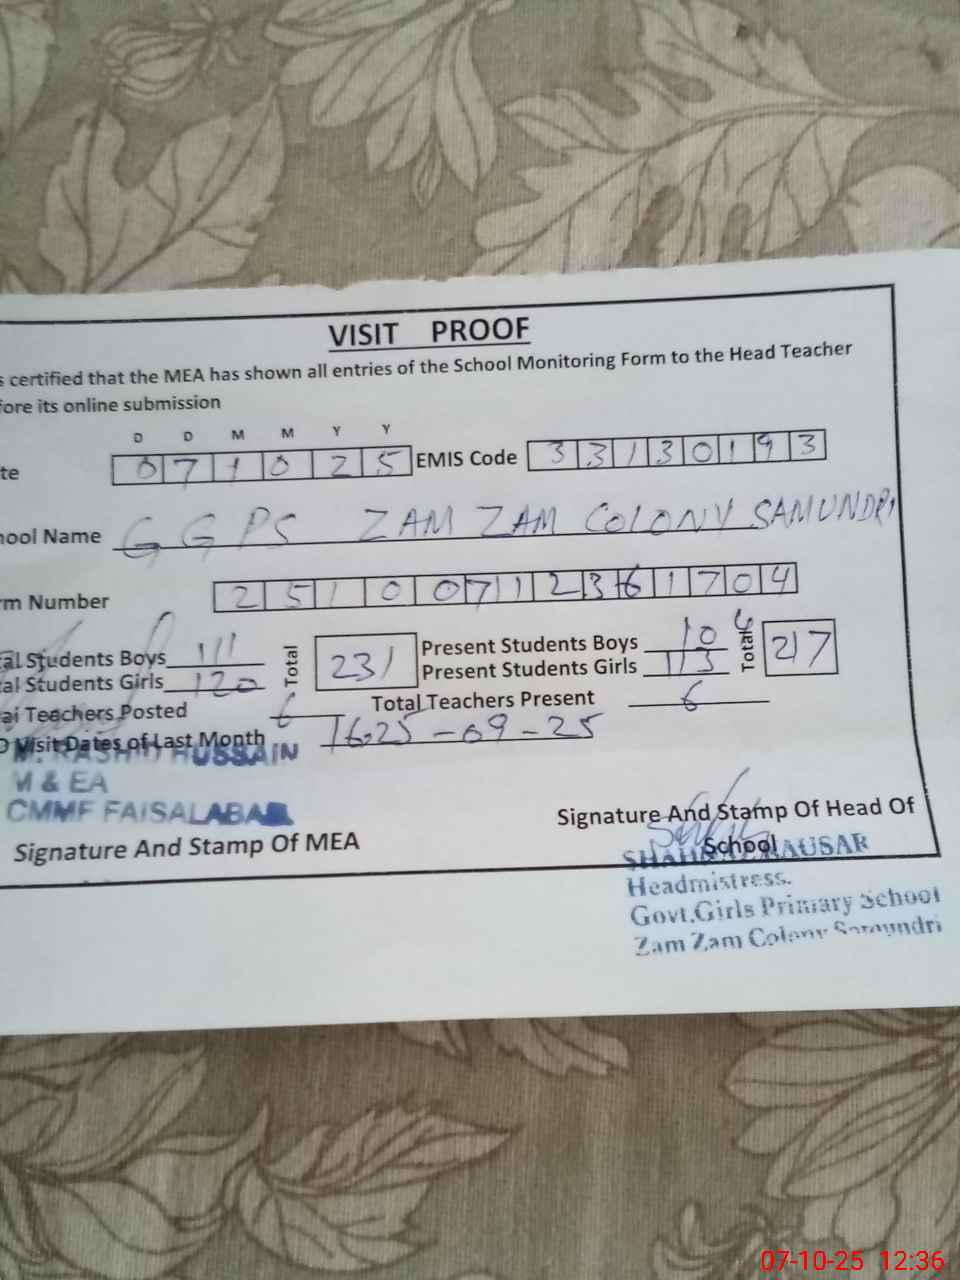 VISIT PROOF
s certified that the MEA has shown all entries of the School Monitoring Form to the Head Teacher
fore its online submission
D D M M Y Y
te 0 7 1 0 2 5 EMIS Code 3 3 1 3 0 1 9 3
hool Name GGPS ZAM ZAM COLONY SAMUNDRI
rm Number 2 5 1 0 0 7 1 2 3 6 1 7 0 4
al Students Boys 111 Total 231 Present Students Boys 104 Total 217
al Students Girls 120 Present Students Girls 113
al Teachers Posted 6 Total Teachers Present 6
Visit Dates of Last Month 16.25-09-25
M. RASHID HUSSAIN
M & EA
CMMF FAISALABAD
Signature And Stamp Of MEA
Signature And Stamp Of Head Of
School
KAUSAR
Headmistress.
Govt.Girls Primary School
Zam Zam Colony Samundri
07-10-25 12:36